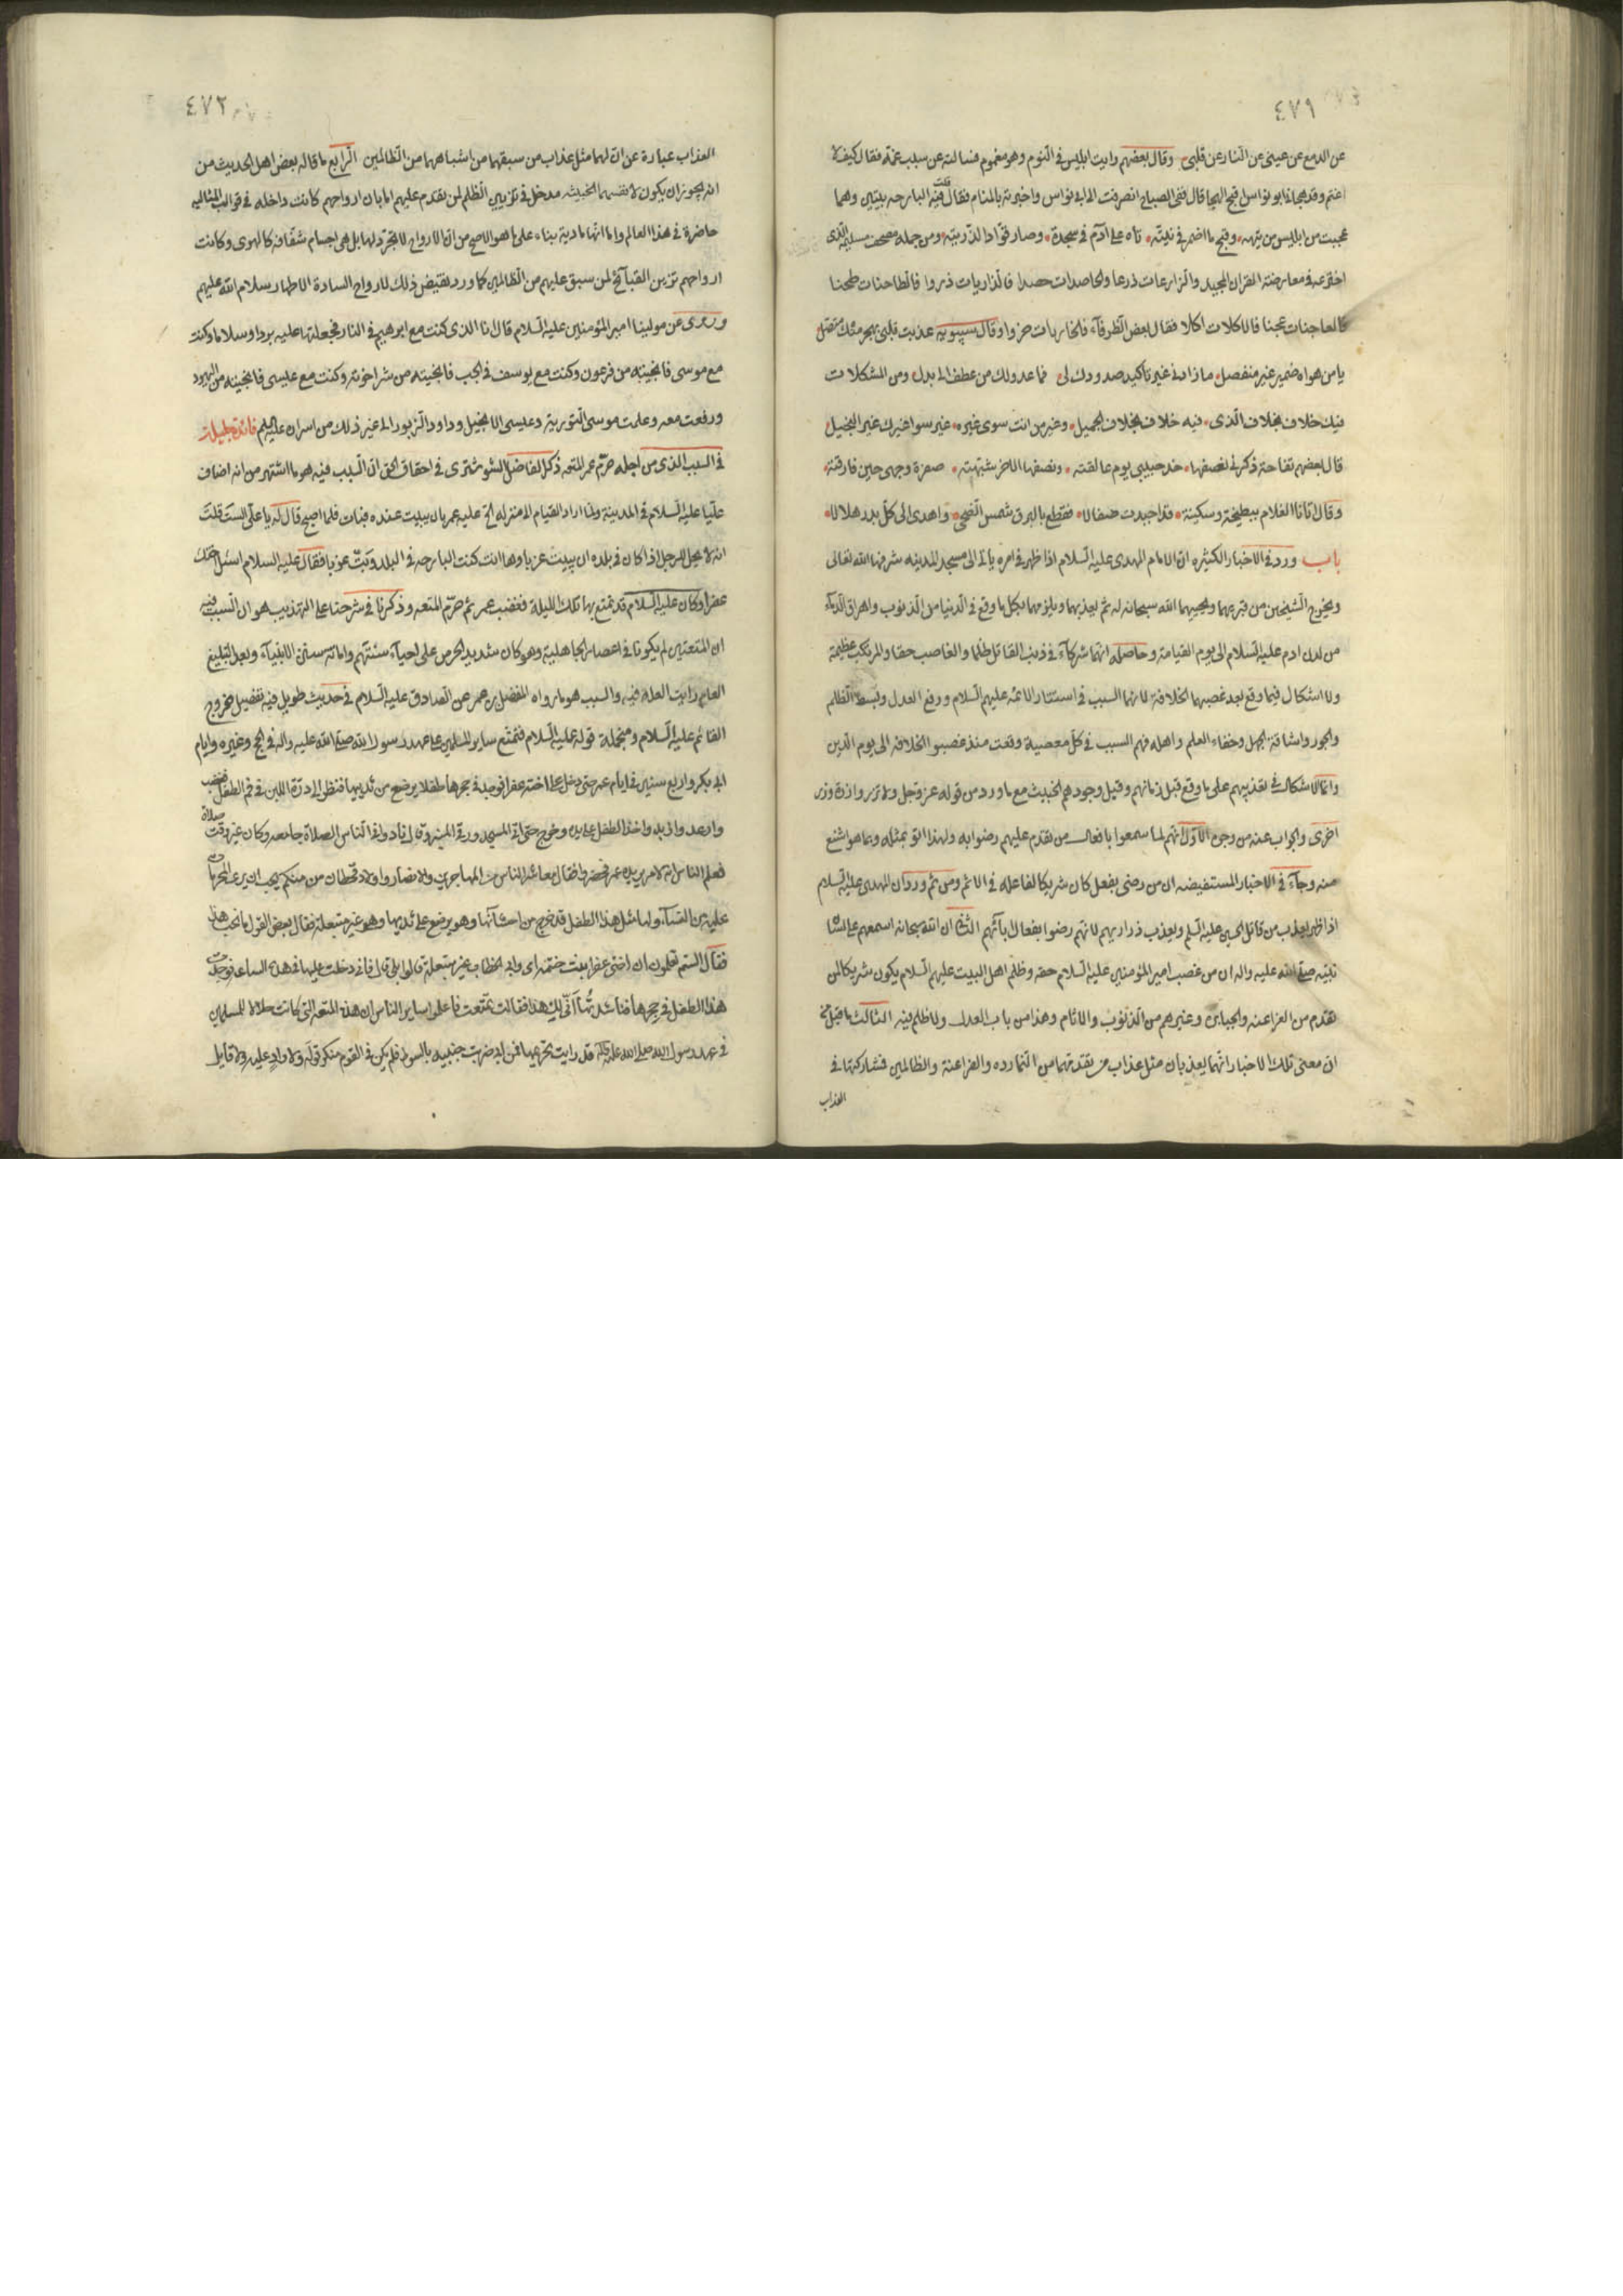 ٤٧١
عن الدمع عن عيني عن النار عن قلبي وقال بعضهم رايت ابليس في النوم وهو مغموم فسالته عن سبب غمه فقال كيف لا
اغتم وقد هجاني ابو نواس اقبح الهجا قال ففي الصباح انصرفت الى ابي نواس واخبرته بالمنام فقال قلت فيه البارحه بيتين وهما
عجبت من ابليس من تيهه وقبح ما اضمر في نيته تاه على آدم في سجدة وصار قوادا لذريته ومن جمله مصحف مسيلمة الذى
اخترعه في معارضة القران المجيد والزارعات ذرعا والحاصدات حصدا فالذاريات ذروا فالطاحنات طحنا
فالعاجنات عجنا فالاكلات اكلا فقال بعض الظرفاء فالخاريات خروا وقال سيبويه عذبت قلبي بهجر منك متصل
يا من هواه ضمير غير منفصل ما زاد في غير تأكيد صدودك لي فما عدولك من عطف الى بدل ومن المشكلات
فيك خلاف بخلاف الذى فيه خلاف بخلاف الجميل وغير من انت سوى غيره غير سوا غيرك غير البخيل
قال بعضهم تفاحة ذكرني نصفها خد حبيبي يوم عانقته ونصفها الاخر شبهته صفرة وجهى حين فارقته
وقال اتانا الغلام ببطيخة وسكينة قد اجيدت صقالا فقطع بالبرق شمس الضحى واهدى الى كل بدر هلالا
باب ورد في الاخبار الكثيره ان الامام المهدى عليه السلام اذا ظهر في امره ياتى الى مسجد المدينه شرفها الله تعالى
ويخرج الشيخين من قبرهما ويحييهما الله سبحانه له ثم يعذبهما ويلزمهما بكل ما وقع في الدنيا من الذنوب واهراق الدماء
من لدن ادم عليه السلام الى يوم القيامة وحاصله انهما شركاء في ذنب القاتل ظلما والغاصب حقا والمرتكب عظيمة
ولا اشكال فيما وقع بعد غصبهما الخلافة لانهما السبب في استتار الائمه عليهم السلام ورفع العدل وبسط الظلم
والجور واشاقة الجهل وخفاء العلم واهله فهم السبب في كل معصية وقعت منذ غصبو الخلافه الى يوم الدين
وانما الاشكال في تعذيبهم على ما وقع قبل زمانهم وقبل وجودهم الخبيث مع ما ورد من قوله عز وجل ولا تزر وازرة وزر
اخرى والجواب عنه من وجوه الاول انهم لما سمعوا بافعال من تقدم عليهم رضوا به ولهذا اتو بمثله وبما هو اشنع
منه وجاء في الاخبار المستفيضه ان من رضى بفعل كان شريكا لفاعله في الاثم ومن ثم ورد ان المهدى عليه السلام
اذا ظهر يعذب من قاتل الحسين عليه السلم ويعذب ذراريهم لانهم رضوا بفعال بآئهم الثاني ان الله سبحانه اسمعهم على لسان
نبيه صلى الله عليه واله ان من غصب امير المؤمنين عليه السلام حقه وظلم اهل البيت عليهم السلام يكون شريكا لمن
تقدم من الفراعنه والجبابره وغيرهم من الذنوب والاثام وهذا من باب العدل ولا ظلم فيه الثالث ما قيل من
ان معنى تلك الاخبار انهما يعذبان مثل عذاب من تقدمهما من النمارده والفراعنة والظالمين فشاركتها في
العذاب
٤٧٢
العذاب عبارة عن ان لهما مثل عذاب من سبقهما من اشباههما من الظالمين الرابع ما قاله بعض اهل الحديث من
انه يجوز ان يكون لانفسهما الخبيثه مدخل في تزيين الظلم لمن تقدم عليهم اما بان ارواحهم كانت داخله في قوالب المثاليه
حاضرة في هذا العالم واما انها مادية بناء على ما هو الاصح من ان الارواح لا تجرد لها بل هي اجسام شفافه كالهوى وكانت
ارواحهم تزين القبآئح لمن سبق عليهم من الظالمين كما ورد نقيض ذلك لارواح السادة الاطهار سلام الله عليهم
وروى عن مولينا امير المؤمنين عليه السلام قال انا الذى كنت مع ابرهيم في النار فجعلتها عليه بردا وسلاما وكنت
مع موسى فانجيته من فرعون وكنت مع يوسف في الجب فانجيته من شر اخوته وكنت مع عيسى فانجيته من اليهود
ورفعت معه وعلمت موسى التورية وعيسى الانجيل وداود الزبور الى غير ذلك من اسراره عليه السلم فائدة جليلة
في السبب الذى من اجله حرم عمر المتعه ذكر الفاضل الشوشترى في احقاق الحق ان السبب فيه هو ما اشتهر من انه اضاف
عليا عليه السلام في المدينة ولما اراد القيام الى منزله الح عليه عمر بان يبيت عنده فبات فلما اصبح قال له يا على الست قلت
انه لا يحل للرجل اذا كان في بلده ان يبيت عزبا وها انت كنت البارحه في البلد وبت عزبا فقال عليه السلام اسئل اختك
عفرا وكان عليه السلام قد تمتع بها تلك الليلة فغضب عمر ثم حرم المتعه وذكرنا في شرحنا على التهذيب هو ان السبب فيه
ان المتعتين لم يكونا في اعصار الجاهلية وهو كان شديد الحرص على احياء سنتهم واماتة سنن الانبياء وبعد تبليغ
العام رايت العله فيه والسبب هو ما رواه المفضل بن عمر عن الصادق عليه السلام في حديث طويل فيه تفصيل خروج
القائم عليه السلام ومنجملة قوله عليه السلام فتمتع ساير المسلمين على عهد رسول الله صلى الله عليه واله في الحج وغيره وايام
ابى بكر واربع سنين في ايام عمر حتى دخل على اخته عفرا فوجد في حجرها طفلا يرضع من ثدييها فنظر الى درة اللبن في فم الطفل فغضب
وارعد وازبد واخذ الطفل على يده وخرج حتى اتى المسجد ورقى المنبر وقال نادوا في الناس الصلاة جامعه وكان غير وقت صلاة
فعلم الناس انه لامر يريده عمر فحضروا فقال معاشر الناس من المهاجرين والانصار واولاد قحطان من منكم يحب ان يرى المحرمات
عليه من النساء ولها مثل هذا الطفل قد خرج من احشآئها وهو يرضع على ثديها وهو غير متبعلة فقال بعض القول ما نحب هذا
فقال الستم تعلمون ان اختى عفرا بنت خثمه امى وابى الخطاب غير متبعلة قالوا بلى قال فانى دخلت عليها في هذه الساعة فوجدت
هذا الطفل في حجرها فناشدتها انى لك هذا فقالت تمتعت فاعلموا ساير الناس ان هذه المتعه التى كانت حلالا للمسلمين
في عهد رسول الله صلى الله عليه واله قد رايت تحريمها فمن ابى ضربت جنبيه بالسوط فلم يكن في القوم منكر قوله ولا راد عليه ولا قايل